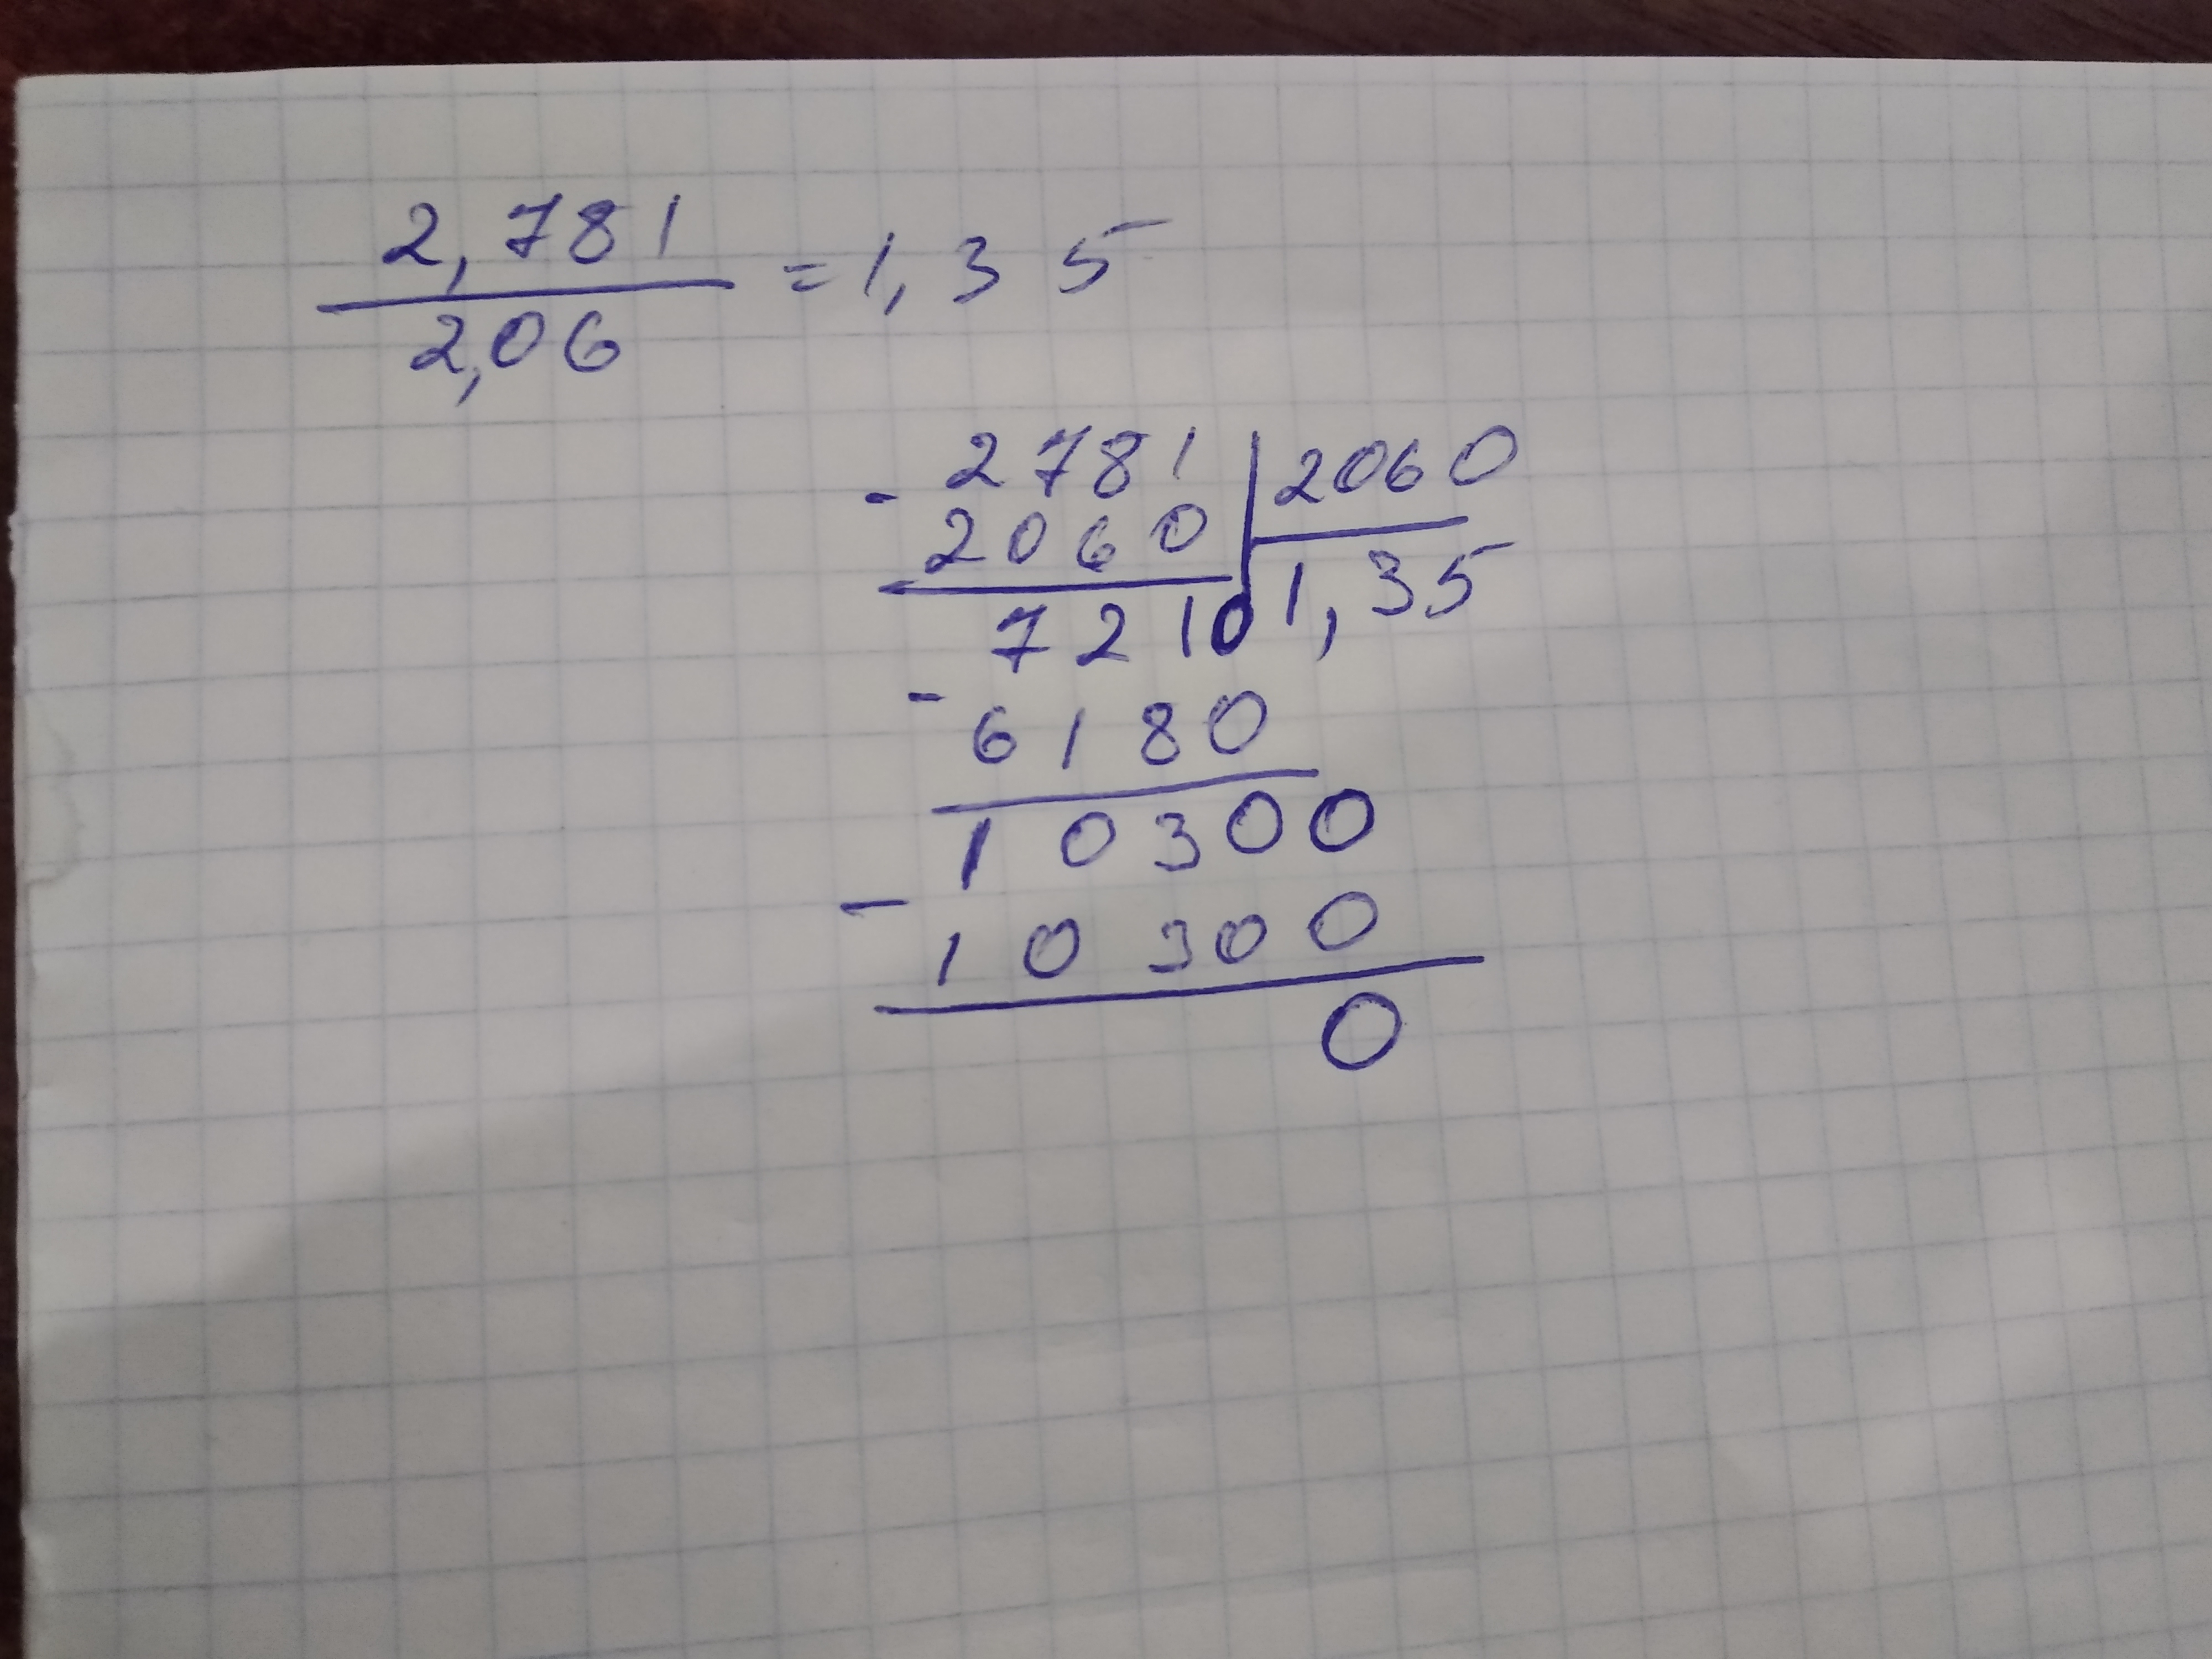 2,781
= 1,35
2,06
- 2781 2060
2060 1,35
7210
- 6180
10300
- 10300
0